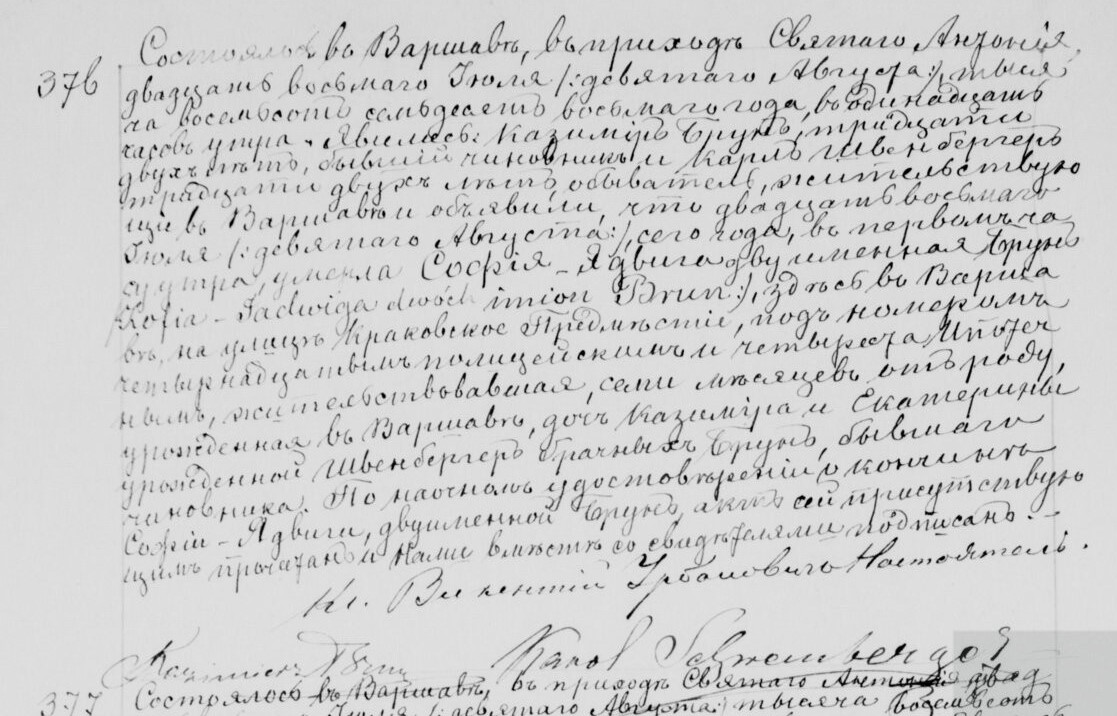 376
Состоялось въ Варшавѣ, въ приходѣ Святаго Антонія,
двадцать восьмаго Іюля /:девятаго Августа:/, тыся
ча восемьсотъ семьдесятъ восьмаго года, въ одинадцать
часовъ утра. Явились: Казиміръ Брунъ, тридцати
двухъ лѣтъ, бывшій чиновникъ и Карлъ Швенбергеръ
тридцати двухъ лѣтъ, обыватель, жительствую
щіе въ Варшавѣ и объявили, что двадцать восьмаго
Іюля /:девятаго Августа:/, сего года, въ первомъ ча
су утра, умерла Софія-Ядвига двуименная Брунъ
/Zofia-Jadwiga dwóch imion Brun:/, здѣсь въ Варша
вѣ, на улицѣ Краковское Предмѣстіе, подъ номеромъ
четырнадцатымъ полицейскимъ и четыреста Ипотеч
нымъ, жительствовавшая, семи мѣсяцевъ отъ роду,
урожденная въ Варшавѣ, дочь Казиміра и Екатерины
урожденной Швенбергеръ брачныхъ Брунъ, бывшаго
чиновника. По наочномъ удостовѣреніи о кончинѣ
Софіи-Ядвиги, двуименной Брунъ, актъ сей присутствую
щимъ прочитанъ и Нами вмѣстѣ со свидѣтелями подписанъ.-
Кс. Викентій Урбановичъ Настоятель.
Kazimierz Brun Karol Schwemberger
377
Состоялось въ Варшавѣ, въ приходѣ Святаго Антонія двад
Іюля /:девятаго Августа:/ тысяча восемьсотъ